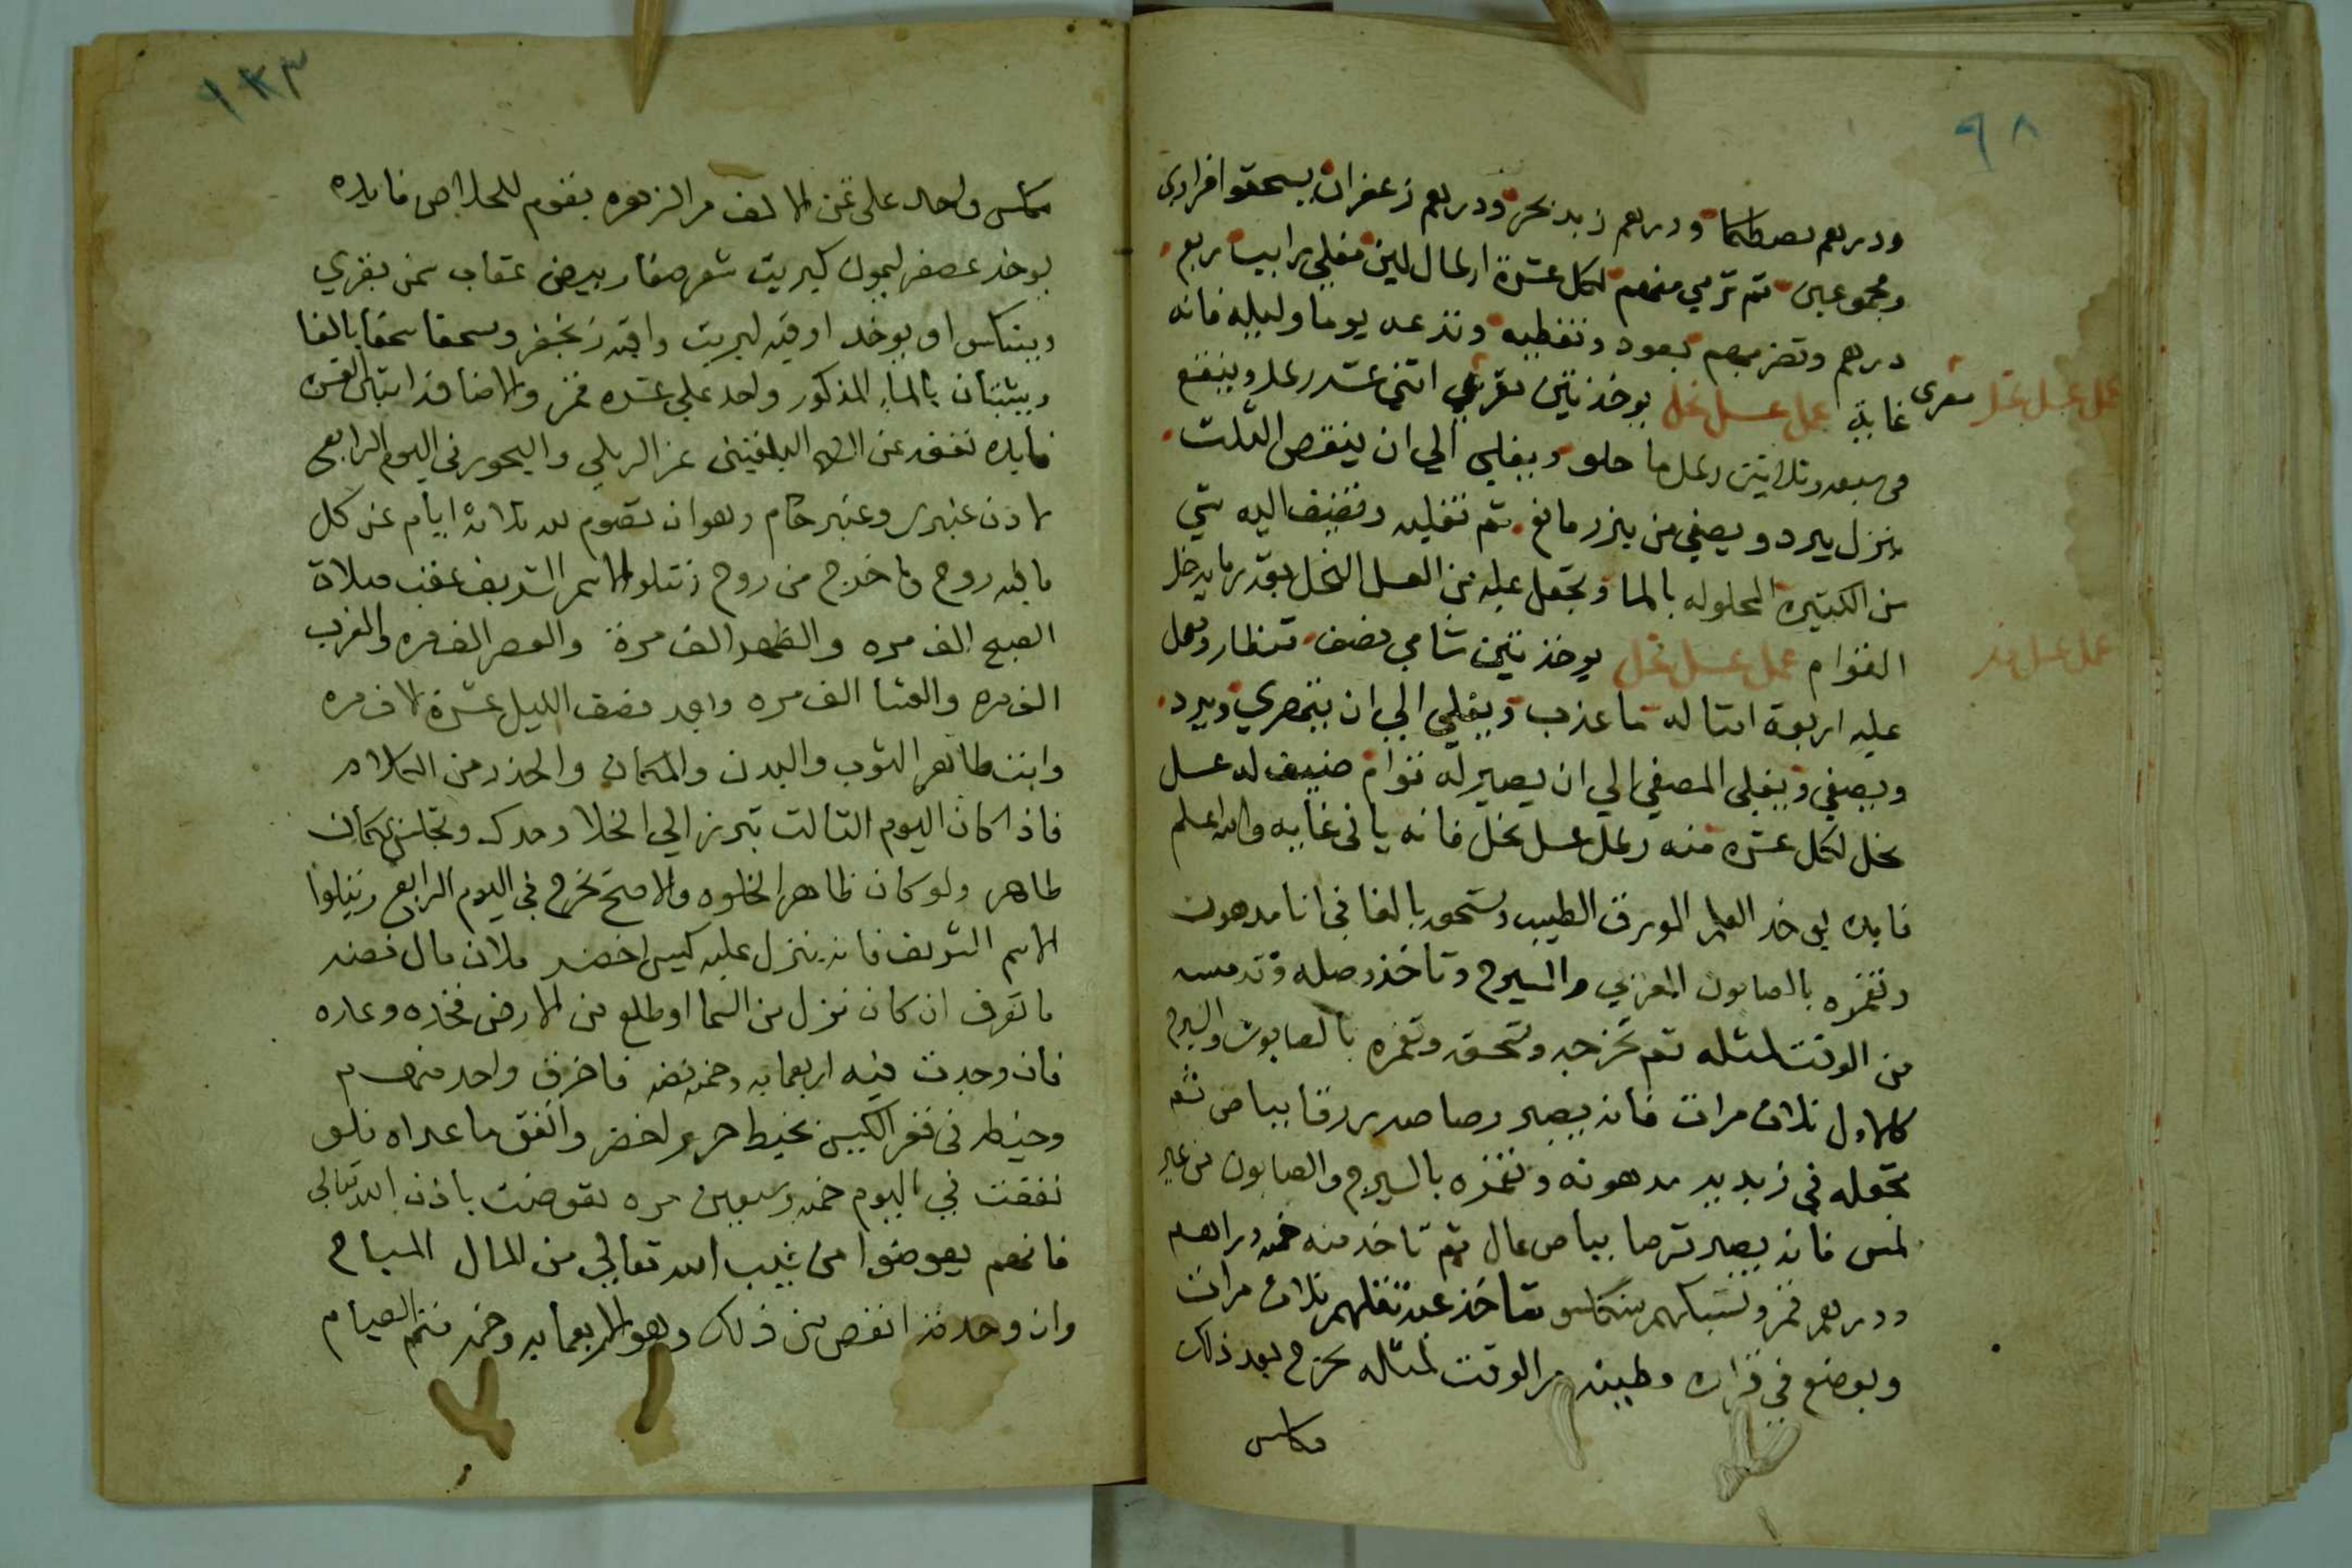 ٩٨
ودرهم مصطكا ودرهم زبد بحر ودرهم زعفران يسحقوا فرادى
ومجموعين تم ترمي منهم لكل عشرة ارطال لبن مغلي رايب ربع
درهم وتضربهم بعود وتغطيه وتدعه يوما وليله فانه
غايه عمل عسل نحل يوخذ تين اتنى عشر رطل وينقع
عمل عسل نحل
في سبعه وتلاتين رطل ما حلو ويغلى الي ان ينقص التلت
ينزل يبرد ويصفى من تم تغليه وتضيف اليه شي
من الكتيره المحلوله بالما وتجعل عليه من العسل النحل بقدر ما يدخل
القوام عمل عسل نحل يوخذ تين شامي نصف قنطار وتعمل
عمل عسل
عليه اربعة امتاله ما عذب ويغلي الي ان يتهري ويبرد
ويصفي ويغلى المصفي الي ان يصير له قوام ضيف له عسل
نحل لكل عشره منه رطل عسل نحل فانه ياتي غايه والله اعلم
فايده يوخد العلم المورق الطيب وتسحقه بالغا في انا مدهون
وتغمره بالصابون المغربي والسيرج وتاخذ وصله وتدمسه
من الوقت لمتله تم تخرجه وتسحقه وتغمره بالصابون والسيرج
كالاول تلات مرات فانه يصير رصاص بياض تم
تجعله في زبديه مدهونه وتغمره بالسيرج والصابون من غير
لمس فانه يصير قرصا بياض عال تم تاخد منه خمسه دراهم
ودرهم قمر وتسبكهم تلات مرات
ويوضع في قزازه وطينه من الوقت لمتله تخرج بعد ذلك
مكاس
١٣٣
مكاس واحد على من الالف من الزهره يقوم للخلاص فايده
يوخد عصفر ليمون كبريت شعر صفار بيض عقاب سمن بقري
وينكاس او يوخد اوقيه كبريت واقيه زنجفر وسحقا سحقا بالغا
ويثبتان بالماء المذكور واحد علي عشره قمر
فايده نفقه عن البلقيني عن الرملي واليحوري في اليوم الرابع
لادن عنبري وعنبر خام وهو ان تصوم لله تلاتة ايام عن كل
ما فيه روح وما خرج من روح وتتلو الاسم الشريف عقب صلاة
الصبح الف مره والظهر الف مرة والعصر الف مره والمغرب
الف مره والعشا الف مره وبعد نصف الليل عشرة الاف مره
وانت طاهر التوب والبدن والمكان والحذر من الكلام
فاذا كان اليوم التالت تبرز الي الخلا وحدك وتجلس بمكان
طاهر ولو كان ظاهر الخلوه والاصح تخرج في اليوم الرابع وتتلوا
الاسم الشريف فانه ينزل عليه كيس اخضر ملان مال فضه
ما تعرف ان كان نزل من السما او طلع من الارض فخده وعده
فان وجدت فيه اربعمايه وخمسه فضه فاخرق واحد منهم
وخيطه في قعر الكيس بخيط حرير اخضر وانفق ما عداه فلو
نفقت في اليوم خمسه وسبعين مره تعوضت باذن الله تعالى
فانهم يعوضوا من غيب الله تعالي من المال المباح
وان وجدته انقص من ذلك وهو الاربعمايه وخمسه فتمم الصيام